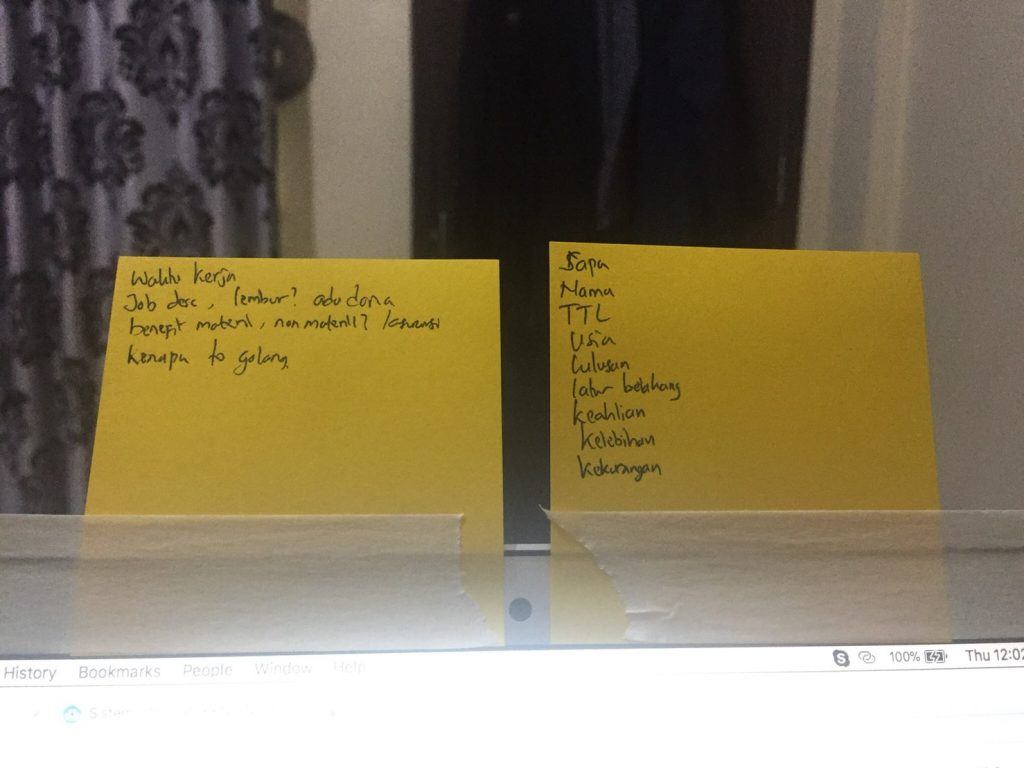 Waktu kerja
Job desc, lembur? ada dana
benefit materil, non materil? /asuransi
kenapa to golang
Sapa
Nama
TTL
Usia
Lulusan
latar belakang
keahlian
kelebihan
kekurangan
History Bookmarks People Window Help
100% Thu 12:02